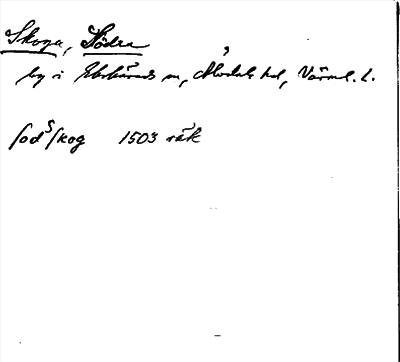 Skoga, Södra
by i Ekshärads sn, Älvdals hd, Värml. l.
sod skog 1503 räk